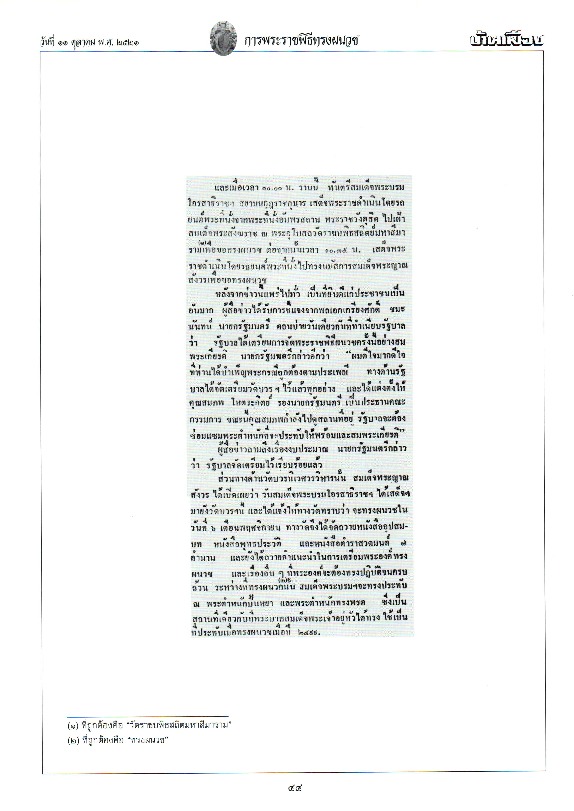 วันที่ ๑๑ ตุลาคม พ.ศ. ๒๕๒๑
การพระราชพิธีทรงผนวช
บ้านเมือง
และเมื่อเวลา ๑๐.๑๐ น. วานนี้ พันตรีสมเด็จพระบรม
โอรสาธิราชฯ สยามมกุฎราชกุมาร เสด็จพระราชดำเนินโดยรถ
ยนต์พระที่นั่งจากพระที่นั่งอัมพรสถาน พระราชวังดุสิต ไปเฝ้า
สมเด็จพระสังฆราช ณ พระอุโบสถวัดราชบพิธสถิตย์มหาสีมา
ราม(๑)เพื่อขอทรงผนวช ต่อจากนั้นเวลา ๑๐.๓๕ น. เสด็จพระ
ราชดำเนินโดยรถยนต์พระที่นั่งไปทรงนมัสการสมเด็จพระญาณ
สังวรเพื่อขอทรงผนวช
หลังจากข่าวนี้แพร่ไปทั่ว เป็นที่ยินดีแก่ประชาชนเป็น
อันมาก ผู้สื่อข่าวได้รับการชี้แจงจากพลเอกเกรียงศักดิ์ ชมะ
นันทน์ นายกรัฐมนตรี ตอนบ่ายวันเดียวกันที่ทำเนียบรัฐบาล
ว่า รัฐบาลได้เตรียมการจัดพระราชพิธีผนวชครั้งนี้อย่างสม
พระเกียรติ นายกรัฐมนตรีกล่าวดีกว่า "ผมดีใจมากดีใจ
ที่ท่านได้บำเพ็ญพระกรณียกิจต้องตามประเพณี ทางด้านรัฐ
บาลได้จัดเตรียมวัดบวร ฯ ไว้แล้วทุกอย่าง และได้แต่งตั้งให้
คุณสมภพ โหตระกิตย์ รองนายกรัฐมนตรี เป็นประธานคณะ
กรรมการ ขณะนี้คุณสมภพกำลังไปดูสถานที่อยู่ รัฐบาลจะต้อง
ซ่อมแซมพระตำหนักที่จะประทับให้พร้อมและสมพระเกียรติ"
ผู้สื่อข่าวถามถึงเรื่องงบประมาณ นายกรัฐมนตรีกล่าว
ว่า รัฐบาลจัดเตรียมไว้เรียบร้อยแล้ว
ส่วนทางด้านวัดบวรนิเวศวรวิหารนั้น สมเด็จพระญาณ
สังวร ได้เปิดเผยว่า วันสมเด็จพระบรมโอรสาธิราชฯ ได้เสด็จฯ
มายังวัดบวรฯนี้ และได้แจ้งให้ทางวัดทราบว่า จะทรงผนวชใน
วันที่ ๖ เดือนพฤศจิกายน ทางวัดจึงได้จัดถวายหนังสืออุปสม-
บท หนังสือพุทธประวัติ และหนังสือตำราสวดมนต์ ๗
ตำนาน และยังได้ถวายคำแนะนำในการเตรียมพระองค์ทรง
ผนวช และเรื่องอื่น ๆ ที่พระองค์จะต้องทรงปฏิบัติจนครบ
ถ้วน ระหว่างที่ทรงผนวกนั้น(๒) สมเด็จพระบรมฯจะทรงประทับ
ณ พระตำหนักปั้นหยา และพระตำหนักทรงพรต ซึ่งเป็น
สถานที่เดียวกับที่พระบาทสมเด็จพระเจ้าอยู่หัวได้ทรง ใช้เป็น
ที่ประทับเมื่อทรงผนวชเมื่อปี ๒๔๙๙.
(๑) ที่ถูกต้องคือ "วัดราชบพิธสถิตมหาสีมาราม"
(๒) ที่ถูกต้องคือ "ทรงผนวช"
๔๙